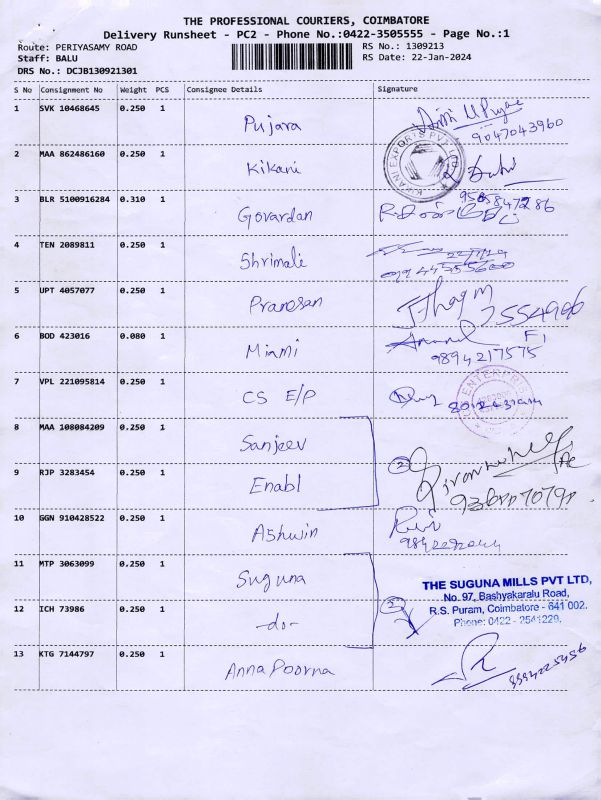 THE PROFESSIONAL COURIERS, COIMBATORE
Delivery Runsheet - PC2 - Phone No.:0422-3505555 - Page No.:1
Route: PERIYASAMY ROAD RS No.: 1309213
Staff: BALU RS Date: 22-Jan-2024
DRS No.: DCJB130921301
S No Consignment No Weight PCS Consignee Details Signature
1 SVK 10468645 0.250 1 Pujara
9047043960
2 MAA 862486160 0.250 1 Kikani
KIKANI EXPORTS PVT LTD
3 BLR 5100916284 0.310 1 Govardan
4 TEN 2089811 0.250 1 Shrimali
5 UPT 4057077 0.250 1 Pranosan
6 BOD 423016 0.080 1 Miami
9894217575
7 VPL 221095814 0.250 1 CS E/P
8 MAA 108084209 0.250 1 Sanjeev
2
9 RJP 3283454 0.250 1 Enabl
10 GGN 910428522 0.250 1 Ashwin
11 MTP 3063099 0.250 1 Suguna
THE SUGUNA MILLS PVT LTD,
No. 97, Bashyakaralu Road,
R.S. Puram, Coimbatore - 641 002.
Phone: 0422 - 2541229,
12 ICH 73986 0.250 1 -do- 2
13 KTG 7144797 0.250 1 AnnaPoorna